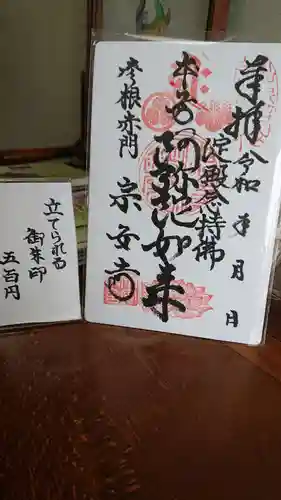 奉拝 令和 年 月 日
淀殿念持佛
本尊
阿弥陀如来
彦根赤門 宗安寺
立てられる
御朱印
五百円